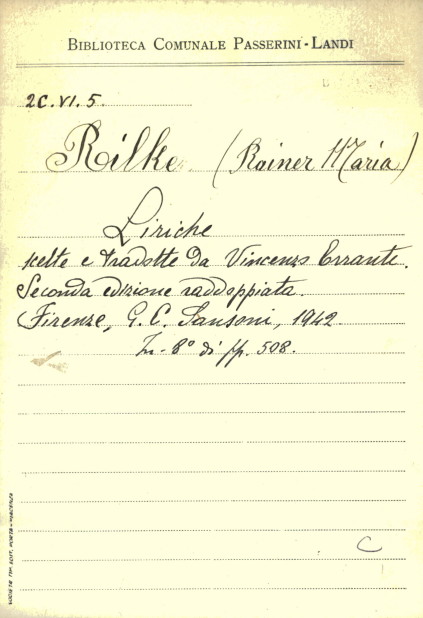 BIBLIOTECA COMUNALE PASSERINI-LANDI
2C.VI.5.
Rilke (Rainer Maria)
Liriche
scelte e tradotte da Vincenzo Errante.
Seconda edizione raddoppiata.
(Firenze, G. C. Sansoni, 1942
In-8° di pp. 508.
C